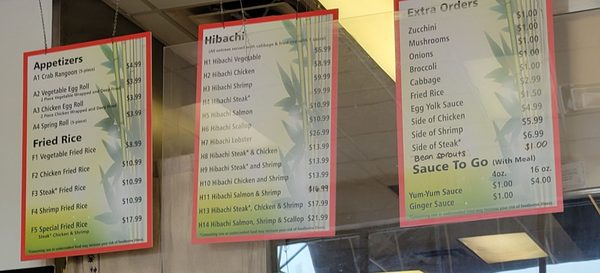 Appetizers
A1 Crab Rangoon (5-piece) $4.99
A2 Vegetable Egg Roll $3.99
2 Piece Vegetable Wrapped and Deep Fried
A3 Chicken Egg Roll $3.99
2 Piece Chicken Wrapped and Deep Fried
A4 Spring Roll $3.99
Fried Rice
F1 Vegetable Fried Rice $8.99
F2 Chicken Fried Rice $10.99
F3 Steak* Fried Rice $10.99
F4 Shrimp Fried Rice $10.99
F5 Special Fried Rice $17.99
Steak* Chicken & Shrimp
Hibachi
H1 Hibachi Vegetable $6.99
H2 Hibachi Chicken $8.99
H3 Hibachi Shrimp $9.99
H4 Hibachi Steak* $9.99
H5 Hibachi Salmon $10.99
H6 Hibachi Scallop
H7 Hibachi Lobster $26.99
H8 Hibachi Steak* & Chicken $13.99
H9 Hibachi Steak* and Shrimp $13.99
H10 Hibachi Chicken and Shrimp $13.99
H11 Hibachi Salmon & Shrimp
H13 Hibachi Steak*, Chicken & Shrimp $17.99
H14 Hibachi Salmon, Shrimp & Scallop $21.99
Extra Orders
Zucchini $1.00
Mushrooms $1.00
Onions $1.00
Broccoli $1.00
Cabbage $2.99
Fried Rice $1.50
Egg Yolk Sauce $4.99
Side of Chicken $5.99
Side of Shrimp $6.99
Side of Steak*
Bean Sprouts $1.00
Sauce To Go (With Meal)
4oz. 16 oz.
Yum-Yum Sauce $1.00 $4.00
Ginger Sauce $1.00